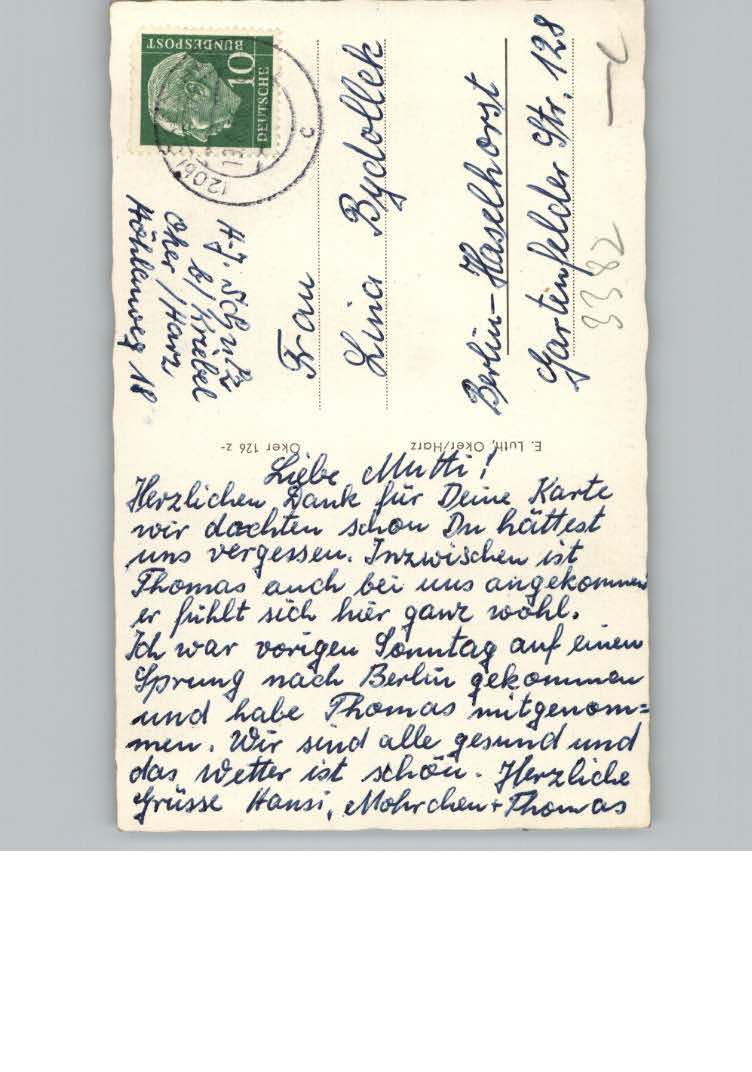 Liebe Mutti!
Herzlichen Dank für Deine Karte
wir dachten schon Du hättest
uns vergessen. Inzwischen ist
Thomas auch bei uns angekommen
er fühlt sich hier ganz wohl.
Ich war vorigen Sonntag auf einen
Sprung nach Berlin gekommen
und habe Thomas mitgenom=
men. Wir sind alle gesund und
das Wetter ist schön. Herzliche
Grüsse Hansi, Mohrchen + Thomas
E. Luth, Oker/Harz
Oker 126 z-
H-J. Schulz
b/ Kriebel
Oker / Harz
Höhlenweg 18
Frau
Lina Bydollek
Berlin-Haselhorst
Gartenfelder Str. 128
3382
DEUTSCHE
BUNDESPOST
10
(20b)
c